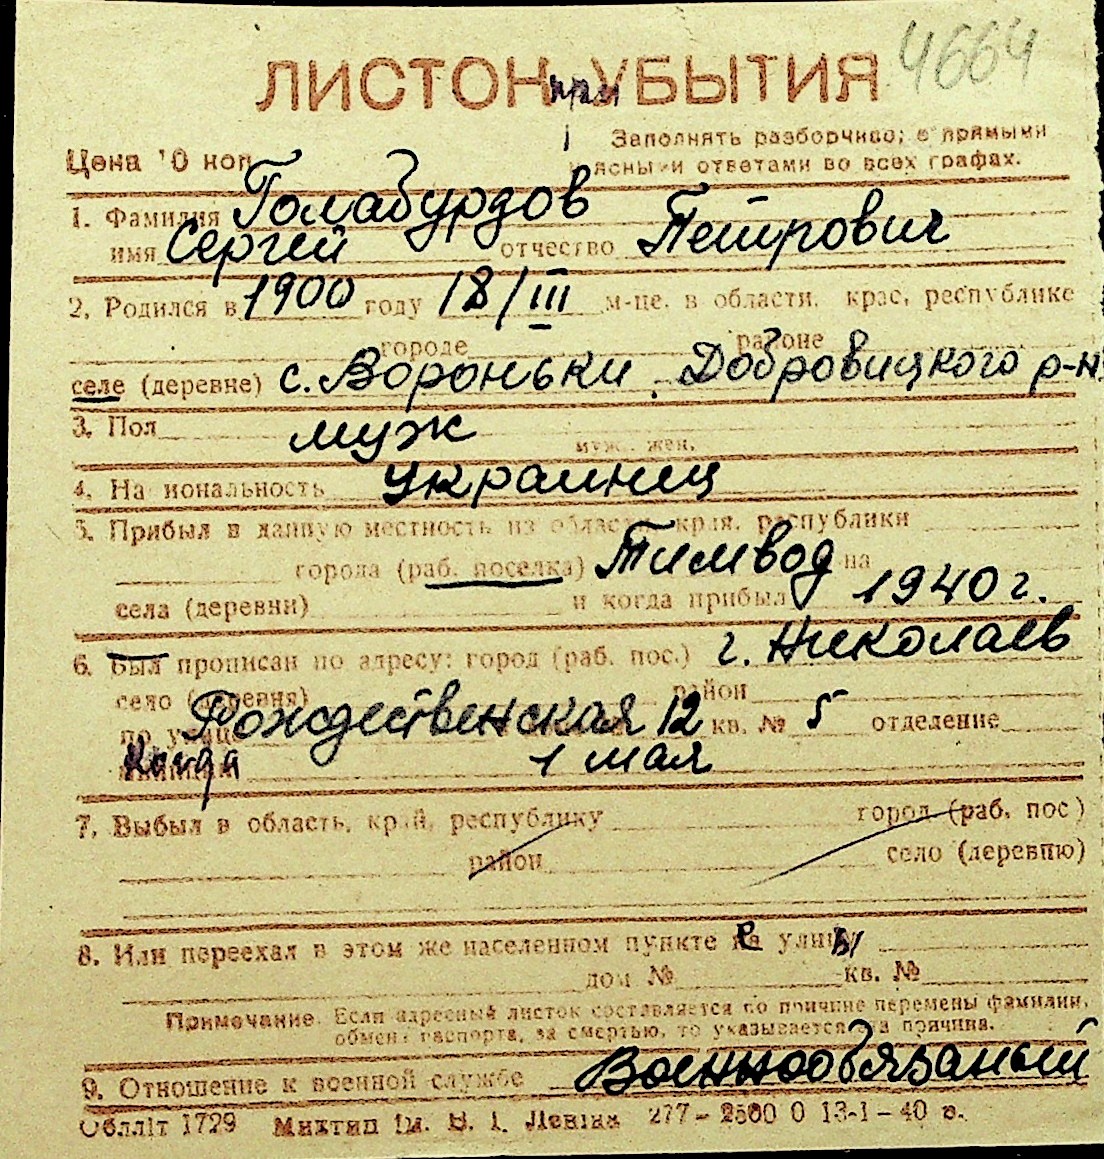 4664
ЛИСТОК при УБЫТИЯ
Заполнять разборчиво, с прямыми
Цена 10 коп. и ясными ответами во всех графах.
1. Фамилия Голабурдов
имя Сергей отчество Петрович
2. Родился в 1900 году 18/III м-це, в области, крае, республике
городе районе
селе (деревне) с. Вороньки, Добровицкого р-н
3. Пол муж муж. жен.
4. Национальность украинец
5. Прибыл в данную местность из области, края, республики
города (раб. поселка) Тимвод на
села (деревни) и когда прибыл 1940 г.
6. Был прописан по адресу: город (раб. пос.) г. Николаев
село (деревня) район
по улице Рождественская 12 кв. № 5 отделение
Когда 1 мая
7. Выбыл в область, край, республику город (раб. пос)
район село (деревню)
8. Или переехал в этом же населенном пункте на улицы
дом № кв. №
Примечание. Если адресный листок составляется по причине перемены фамилии,
обмена паспорта, за смертью, то указывается эта причина.
9. Отношение к военной службе Военнообязаный
Облліт 1729 Миктип ім. В. І. Леніна 277–2500 0 13-1–40 в.